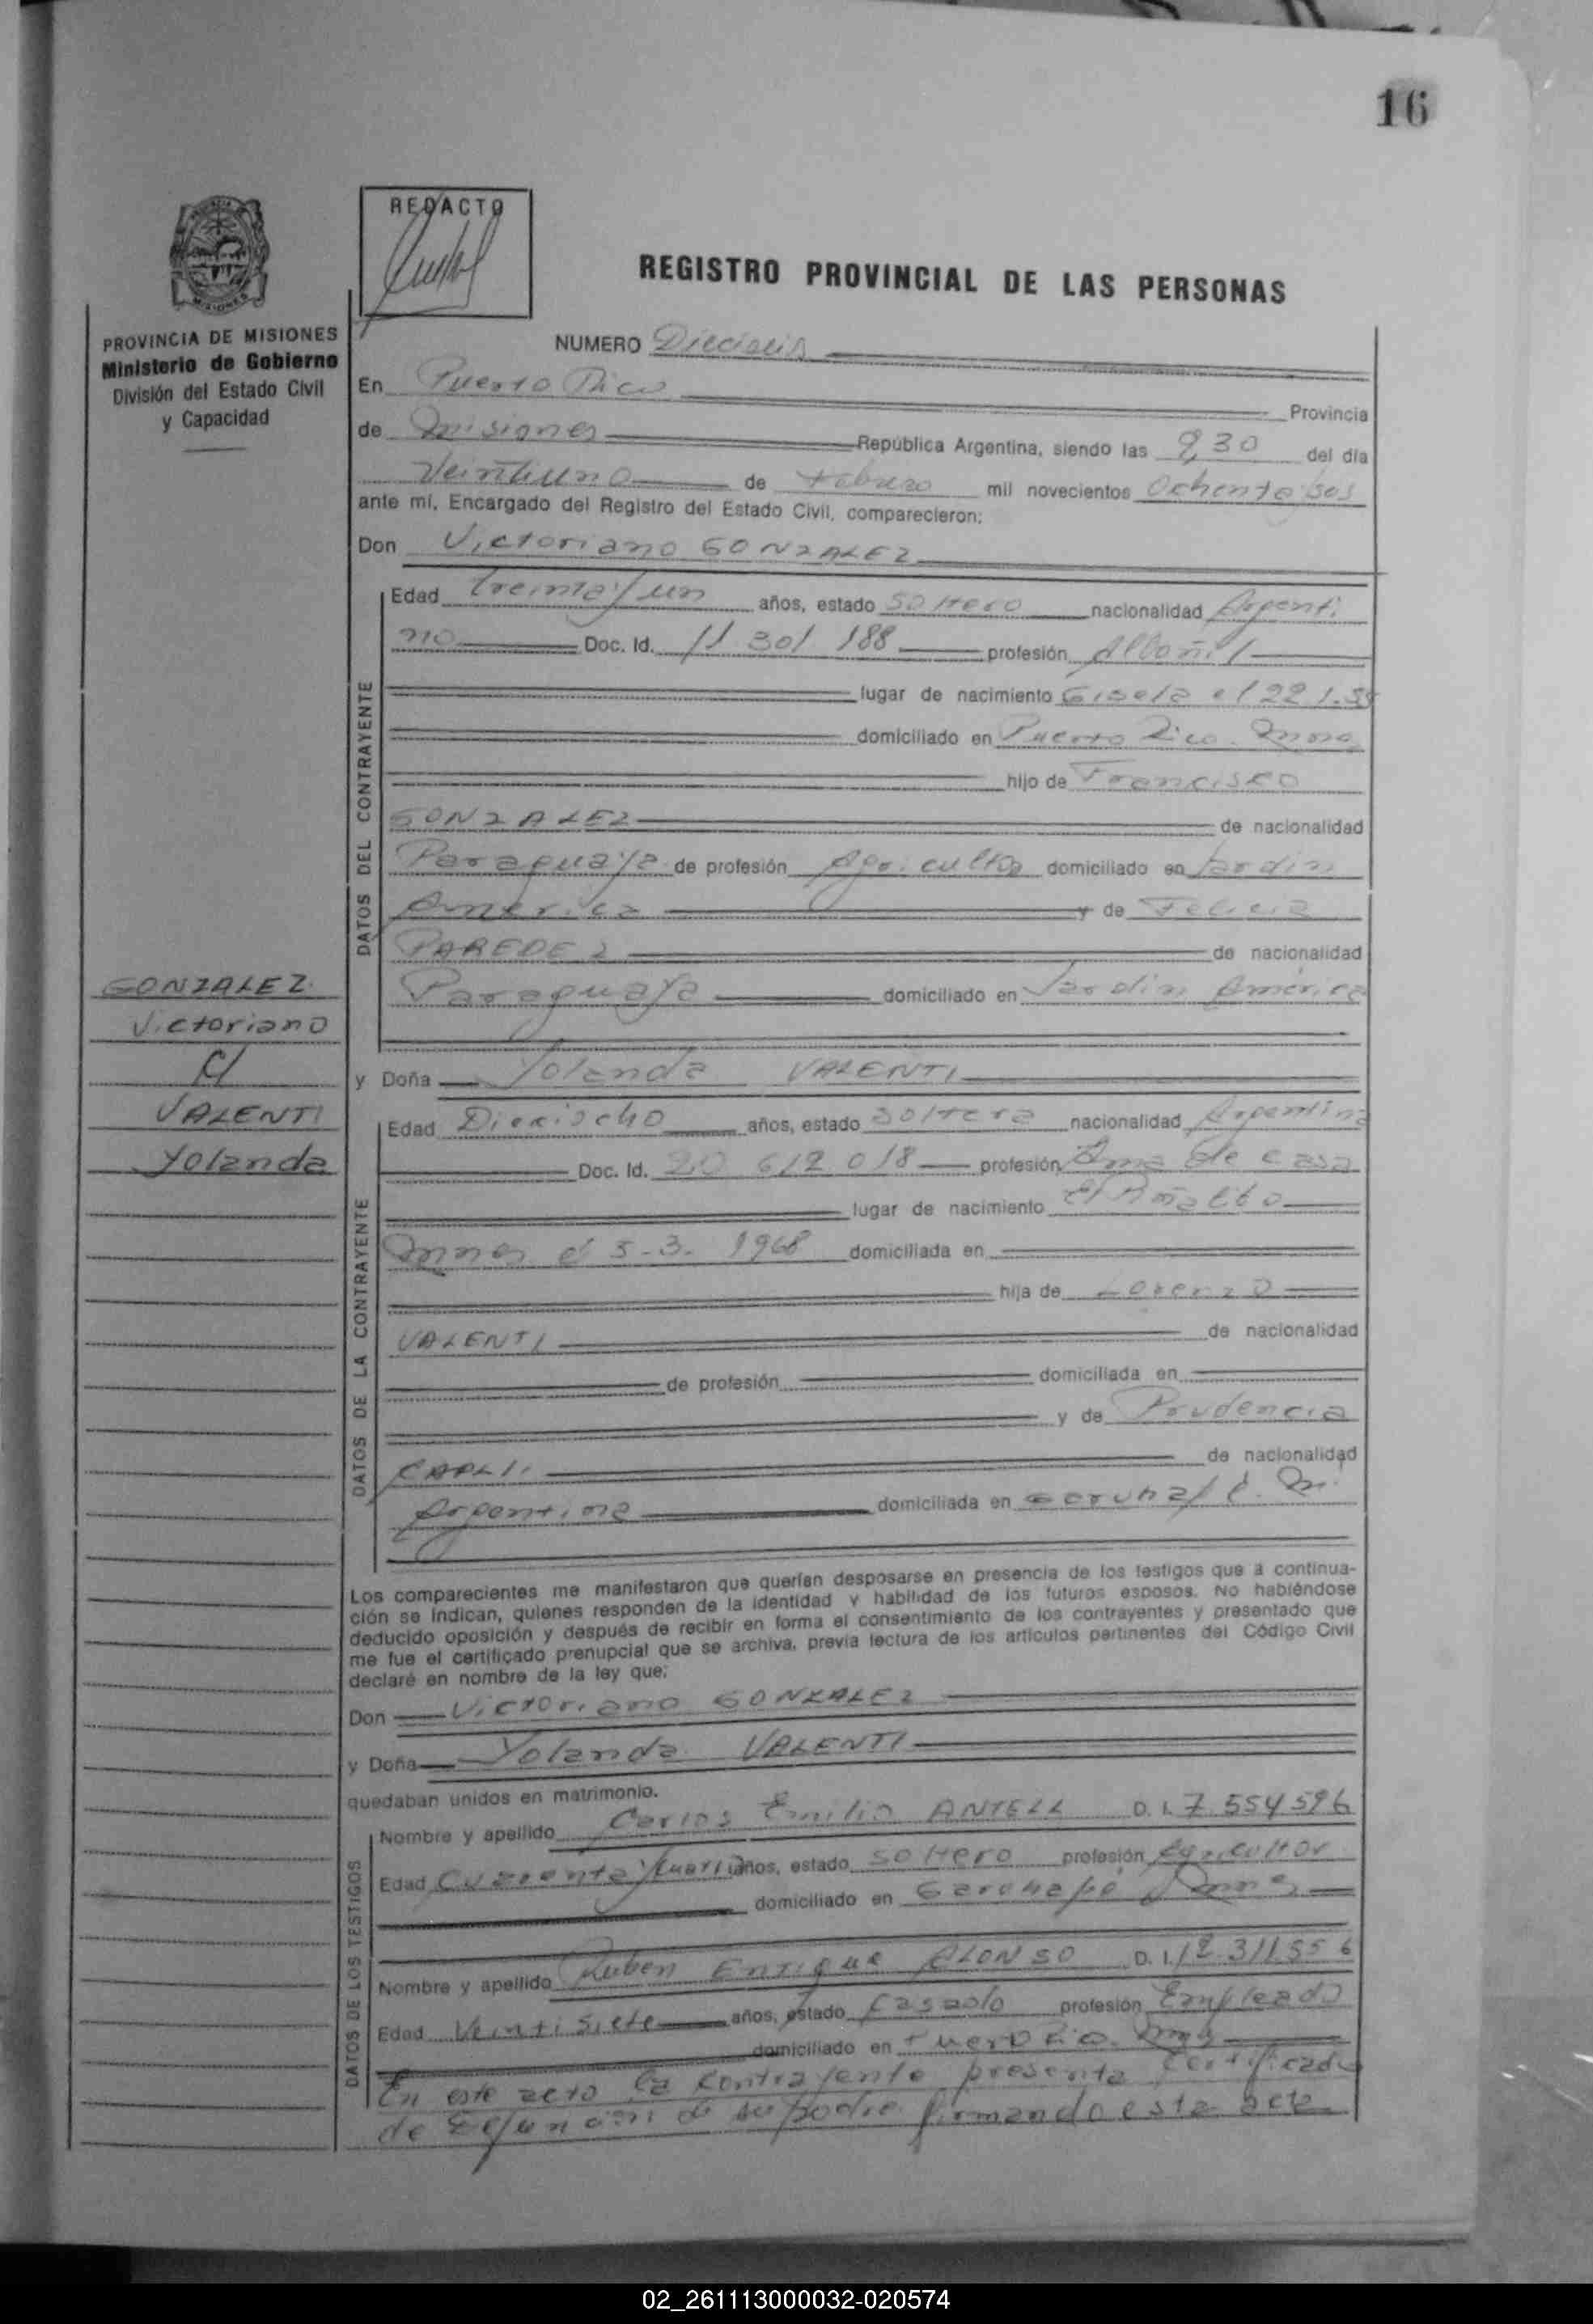 16
REDACTO
REGISTRO PROVINCIAL DE LAS PERSONAS
PROVINCIA DE MISIONES
Ministerio de Gobierno
División del Estado Civil
y Capacidad
NUMERO Dieciseis
En Puerto Rico Provincia
de Misiones República Argentina, siendo las 9,30 del día
Veintiuno de Febrero mil novecientos Ochenta y seis
ante mí, Encargado del Registro del Estado Civil, comparecieron:
Don Victoriano GONZALEZ
DATOS DEL CONTRAYENTE
Edad treinta y un años, estado soltero nacionalidad Argenti
no Doc. Id. 11 301 188 profesión Albañil
lugar de nacimiento Gisela el 22 1.
domiciliado en Puerto Rico. Mnes
hijo de Francisco
GONZALEZ de nacionalidad
Paraguaya de profesión Agricultor domiciliado en Jardin
America y de Felicia
PAREDEZ de nacionalidad
Paraguaya domiciliado en Jardin América
GONZALEZ.
Victoriano
C/
VALENTI
Yolanda
y Doña Yolanda VALENTI
DATOS DE LA CONTRAYENTE
Edad Dieciocho años, estado soltera nacionalidad Argentina
Doc. Id. 20 612 018 profesión Ama de casa
lugar de nacimiento El
Mnes el 5-3. 1968 domiciliada en
hija de Lorenzo
VALENTI de nacionalidad
de profesión domiciliada en
y de Prudencia
de nacionalidad
Argentina domiciliada en
Los comparecientes me manifestaron que querían desposarse en presencia de los testigos que a continua-
ción se indican, quienes responden de la identidad y habilidad de los futuros esposos. No habiéndose
deducido oposición y después de recibir en forma el consentimiento de los contrayentes y presentado que
me fue el certificado prenupcial que se archiva, previa lectura de los artículos pertinentes del Código Civil
declaré en nombre de la ley que:
Don Victoriano GONZALEZ
y Doña Yolanda VALENTI
quedaban unidos en matrimonio.
DATOS DE LOS TESTIGOS
Nombre y apellido Carlos Emilio ANTELL D. I. 7 554 596
Edad Cuarenta y años, estado soltero profesión Agricultor
domiciliado en Garuhape Mnes
Nombre y apellido Ruben Enrique ALONSO D. I. 12.311.556
Edad Veintisiete años, estado Casado profesión Empleado
domiciliado en Puerto Rico. Mnes
En este acto la contrayente presenta Certificado
de Defuncion de su padre firmando esta acta
02_261113000032-020574